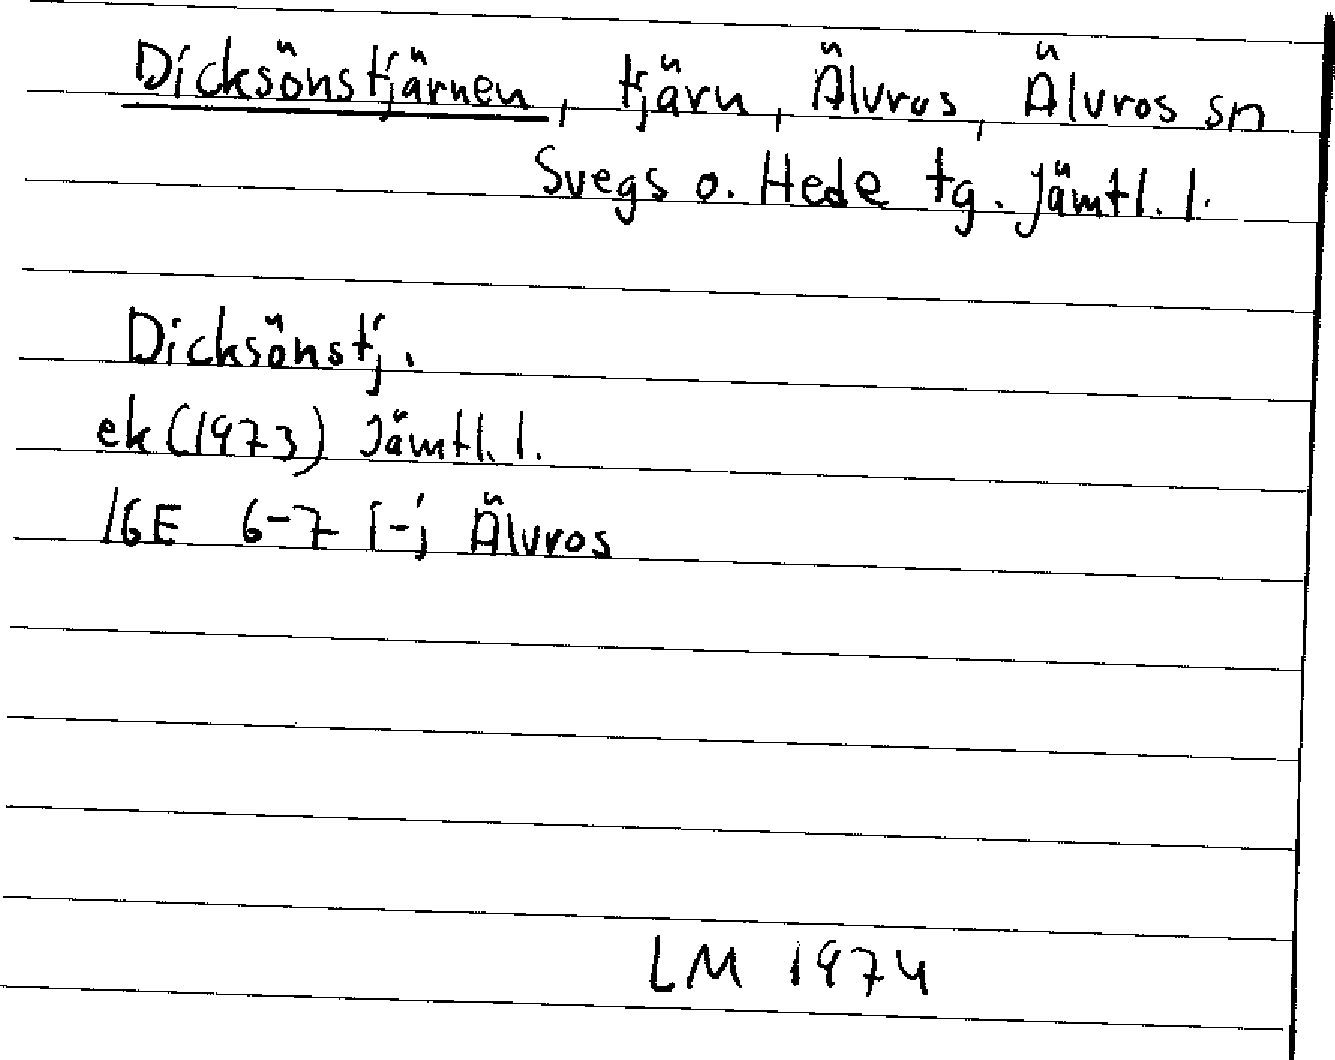 Dicksönstjärnen, tjärn, Älvros, Älvros sn
Svegs o. Hede tg. Jämtl. l.
Dicksönstj.
ek (1973) Jämtl. l.
16E 6-7 i-j Älvros
LM 1974